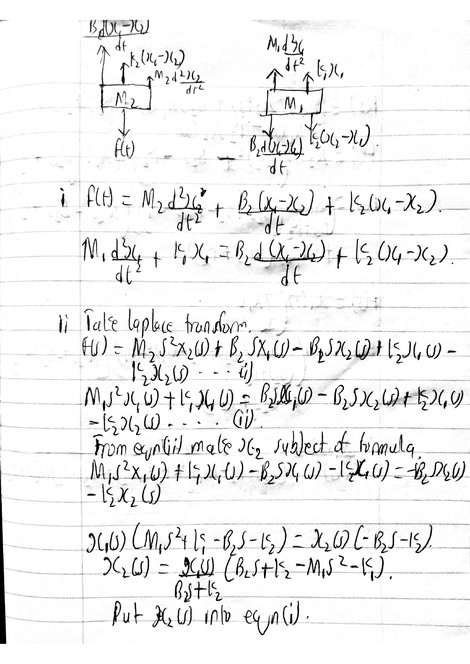 Bd(x₁-x₂)
dt
k₂(x₁-x₂)
M₂d²x₂
dt²
M₂
f(t)
M₁d²x₁
dt²
k₁x₁
M₁
B₂d(x₁-x₂)
dt
k₂(x₂-x₁).
i f(t) = M₂d²x₂/dt² + B₂(x₁-x₂)/dt + k₂(x₁-x₂).
M₁d²x₁/dt² + k₁x₁ = B₂d(x₁-x₂)/dt + k₂(x₁-x₂).
ii Take laplace transform.
f(s) = M₂s²x₂(s) + B₂sx₁(s) - B₂sx₂(s) + k₂x₁(s) -
k₂x₂(s) ---- i)
M₁s²x₁(s) + k₁x₁(s) = B₂sx₁(s) - B₂sx₂(s) + k₂x₁(s)
- k₂x₂(s) ..... (ii).
From eqn(ii) make x₂ subject of formula.
M₁s²x₁(s) + k₁x₁(s) - B₂sx₁(s) - k₂x₁(s) = -B₂sx₂(s)
- k₂x₂(s)
x₁(s) (M₁s² + k₁ - B₂s - k₂) = x₂(s) (-B₂s - k₂).
x₂(s) = x₁(s)/B₂s+k₂ (B₂s + k₂ - M₁s² - k₁).
Put x₂(s) into eqn(i).